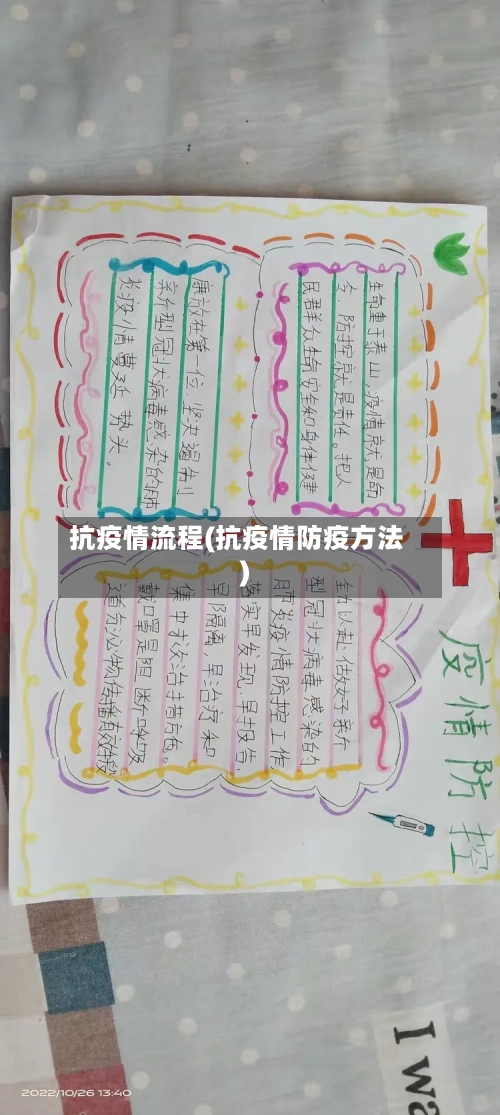 疫情防控
生命重于泰山,疫情就是命
令,防控就是责任。把人
民群众生命安全和身体健
康放在第一位,坚决遏制
新冠
抗疫情流程(抗疫情防疫方法
)
炎疫情蔓延势头。
全力以赴,做好新
型冠状病毒感染的
肺炎疫情防控工作,
落实早发现、早报告、
早隔离、早治疗和
集中救治措施。
戴口罩是阻断呼吸
道分泌物传播有效手段
I wa
2022/10/26 13:40